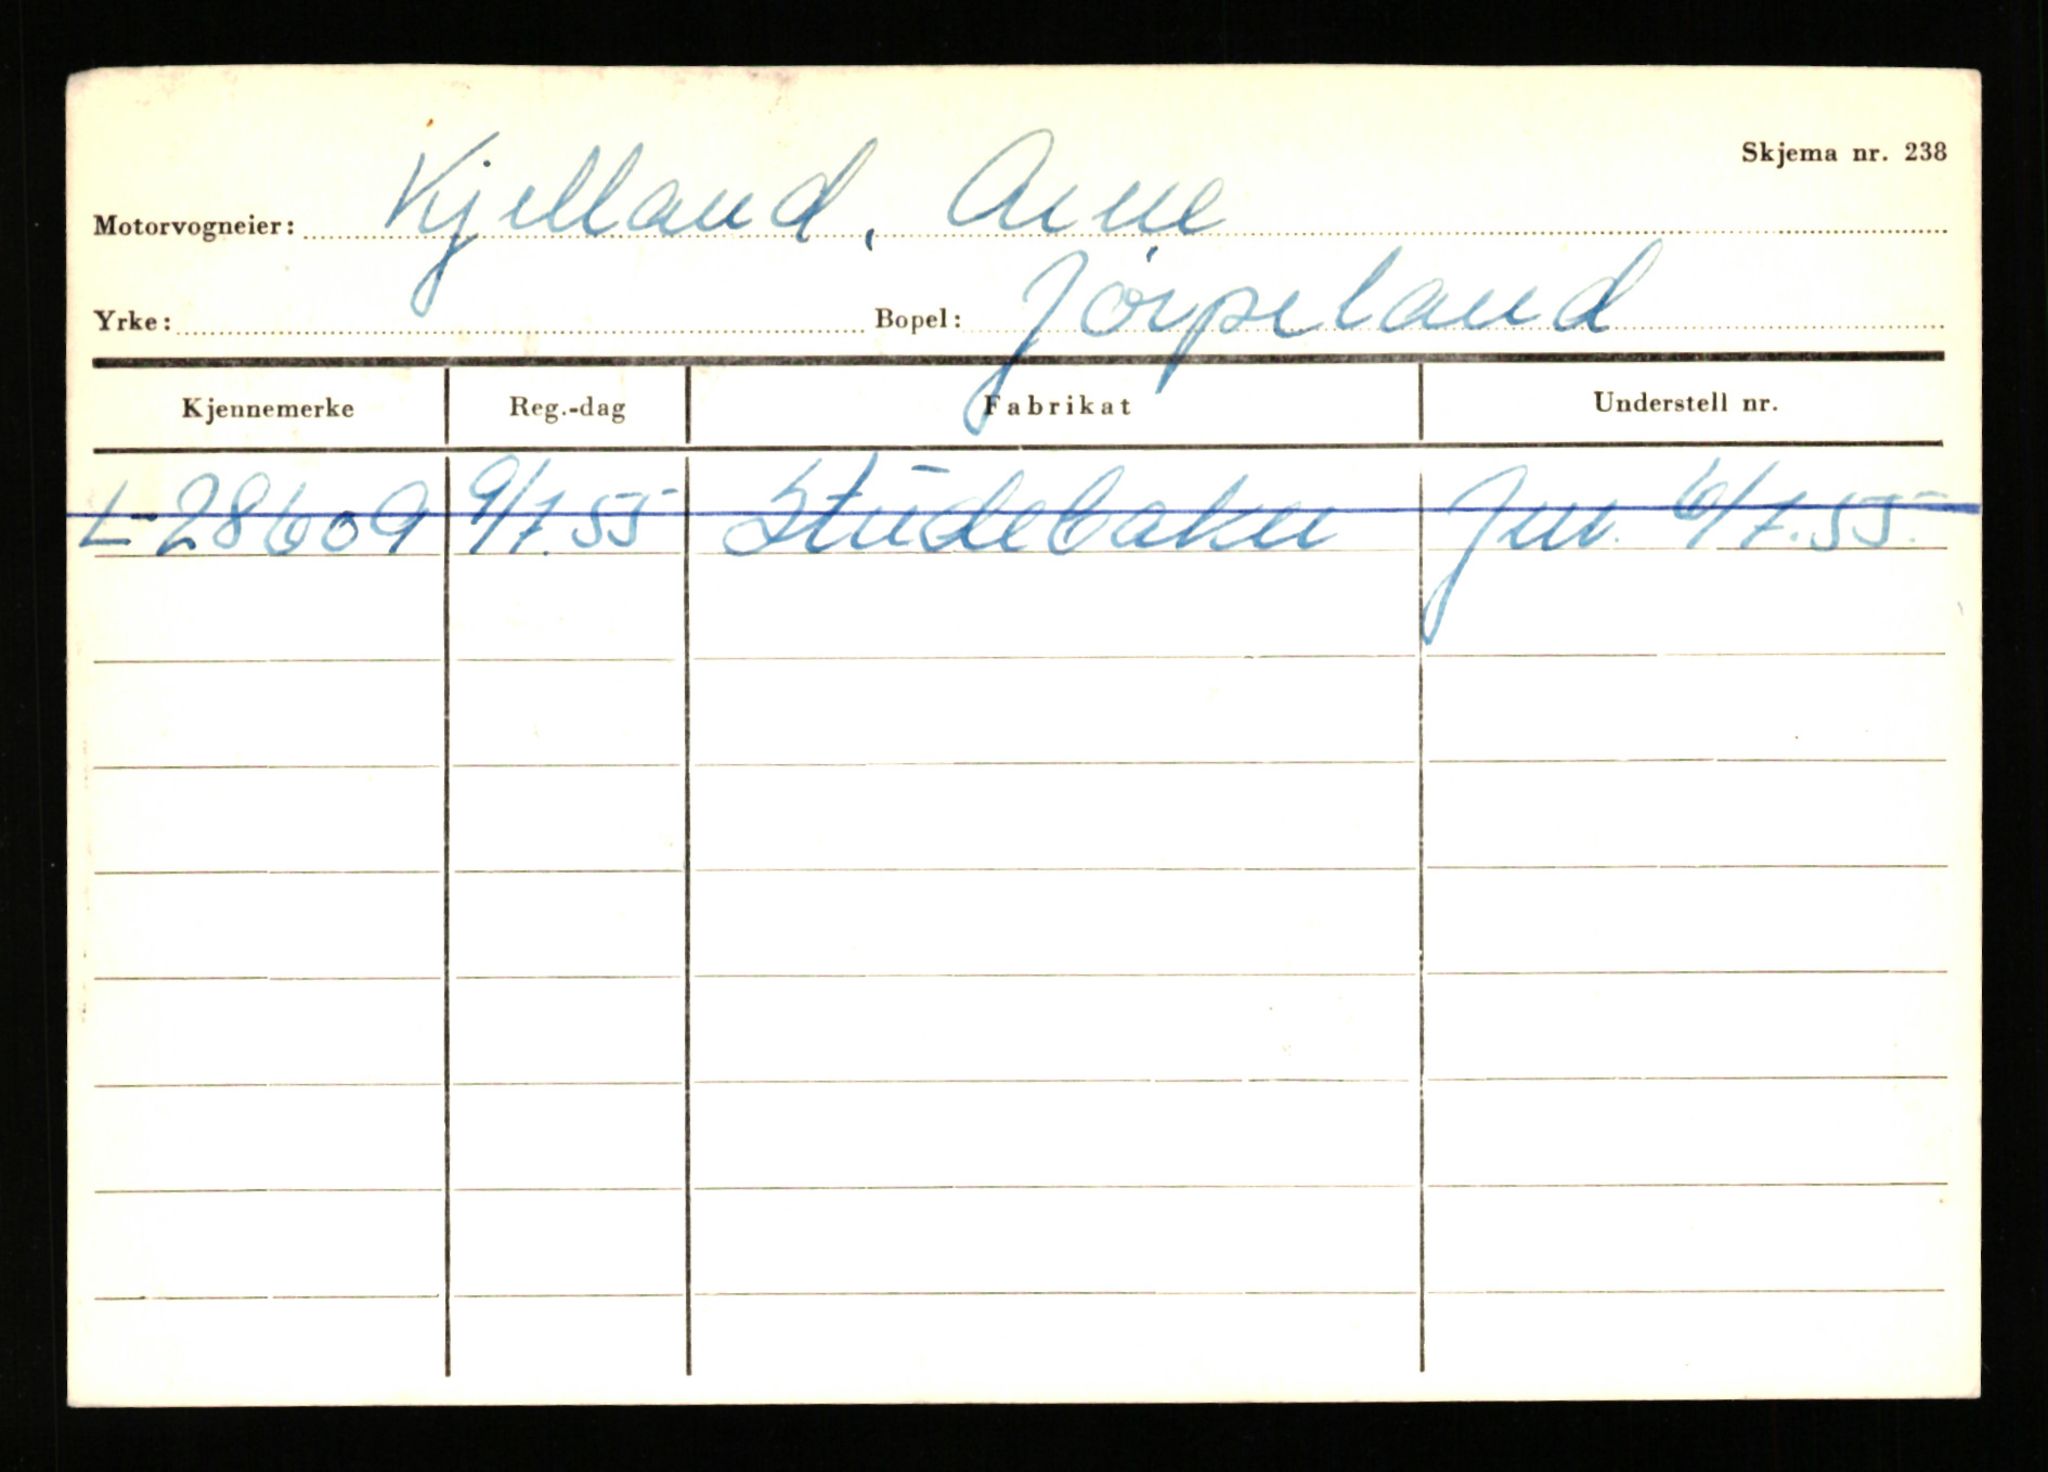 Skjema nr. 238
Motorvogneier: Kjelland, Arne
Yrke: Bopel: Jørpeland
Kjennemerke Reg.-dag Fabrikat Understell nr.
L-28609 9/7.55 Studebaker 6/7.55.